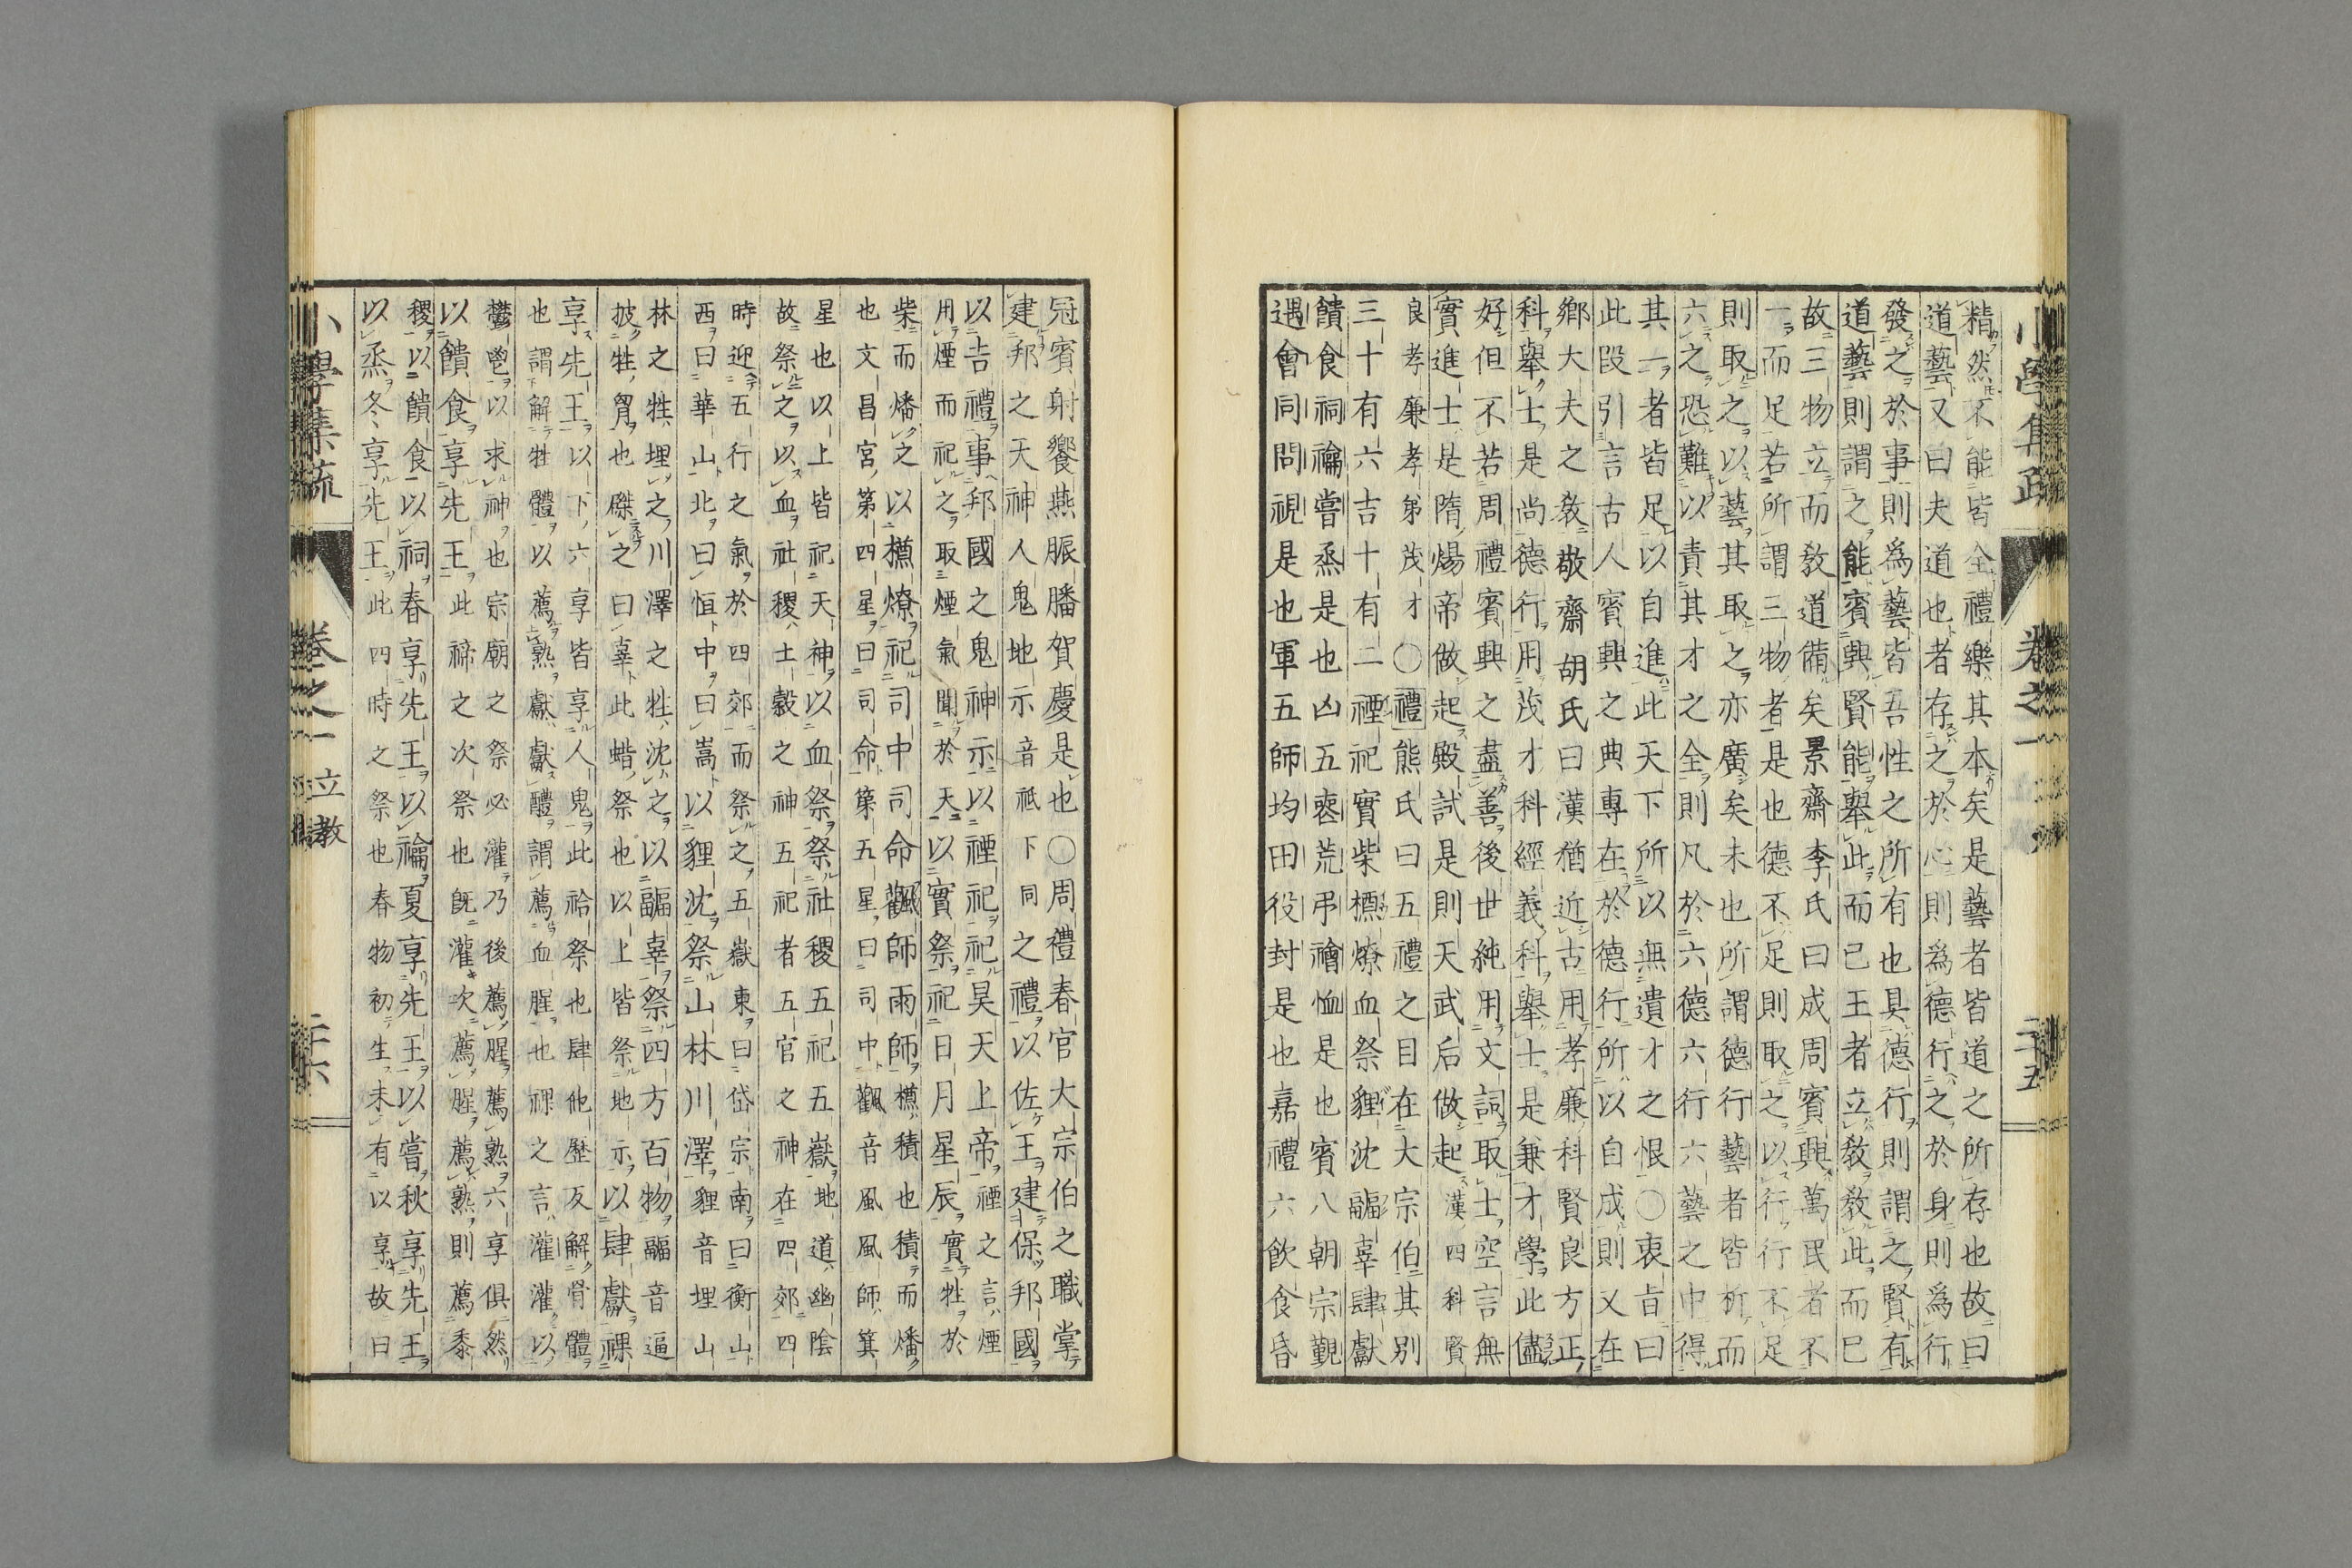 精然不能皆全禮樂其本矣是藝者皆道之所存也故曰
道藝又曰夫道也者存之於心則爲德行之於身則爲行
發之於事則爲藝皆吾性之所有也具德行則謂之賢有
道藝則謂之能賓興賢能舉此而已王者立教教此而已
故三物立而教道備矣景齋李氏曰成周賓興萬民者不
一而足若所謂三物者是也德不足則取之以行行不足
則取之以藝其取之亦廣矣未也所謂德行藝者皆析而
六之恐難以責其才之全則凡於六德六行六藝之中得
其一者皆足以自進此天下所以無遺才之恨〇衷旨曰
此段引言古人賓興之典專在於德行所以自成則又在
鄉大夫之教敬齋胡氏曰漢猶近古用孝廉科賢良方正
科舉士是尚德行用茂才科經義科舉士是兼才學此儘
好但不若周禮賓興之盡善後世純用文詞取士空言無
實進士是隋煬帝做起殿試是則天武后做起漢四科賢
良孝廉孝弟茂才〇禮熊氏曰五禮之目在大宗伯其別
三十有六吉十有二禋祀實柴槱燎血祭貍沈疈辜肆獻
饋食祠禴嘗烝是也凶五喪荒弔禬恤是也賓八朝宗覲
遇會同問視是也軍五師均田役封是也嘉禮六飲食昏
小學集疏 卷之一 二十五
冠賓射饗燕脤膰賀慶是也〇周禮春官大宗伯之職掌
建邦之天神人鬼地示音祇下同之禮以佐王建保邦國
以吉禮事邦國之鬼神示以禋祀祀昊天上帝禋之言煙
用煙而祀之取煙氣聞於天以實祭祀日月星辰實牲於
柴而燔之以槱燎祀司中司命觀師雨師槱積也積而燔
也文昌宮第四星曰司命第五星曰司中觀音風風師箕
星也以上皆祀天神以血祭祭社稷五祀五嶽地道幽陰
故祭之以血社稷土穀之神五祀者五官之神在四郊四
時迎五行之氣於四郊而祭之五嶽東曰岱宗南曰衡山
西曰華山北曰恒中曰嵩以貍沈祭山林川澤貍音埋山
林之牲埋之川澤之牲沈之以疈辜祭四方百物疈音逼
披牲胷也磔之曰辜此蜡祭也以上皆祭地示以肆獻祼
享先王以下六享皆享人鬼此祫祭也肆他歷反解骨體
也謂解牲體以薦熟獻獻醴謂薦血腥也祼之言灌灌以
鬱鬯以求神也宗廟之祭必灌乃後薦腥薦熟六享俱然
以饋食享先王此禘之次祭也既灌次薦腥薦熟則薦黍
稷以饋食以祠春享先王以禴夏享先王以嘗秋享先王
以烝冬享先王此四時之祭也春物初生未有以享故曰
小學集疏 卷之一 立教 二十六